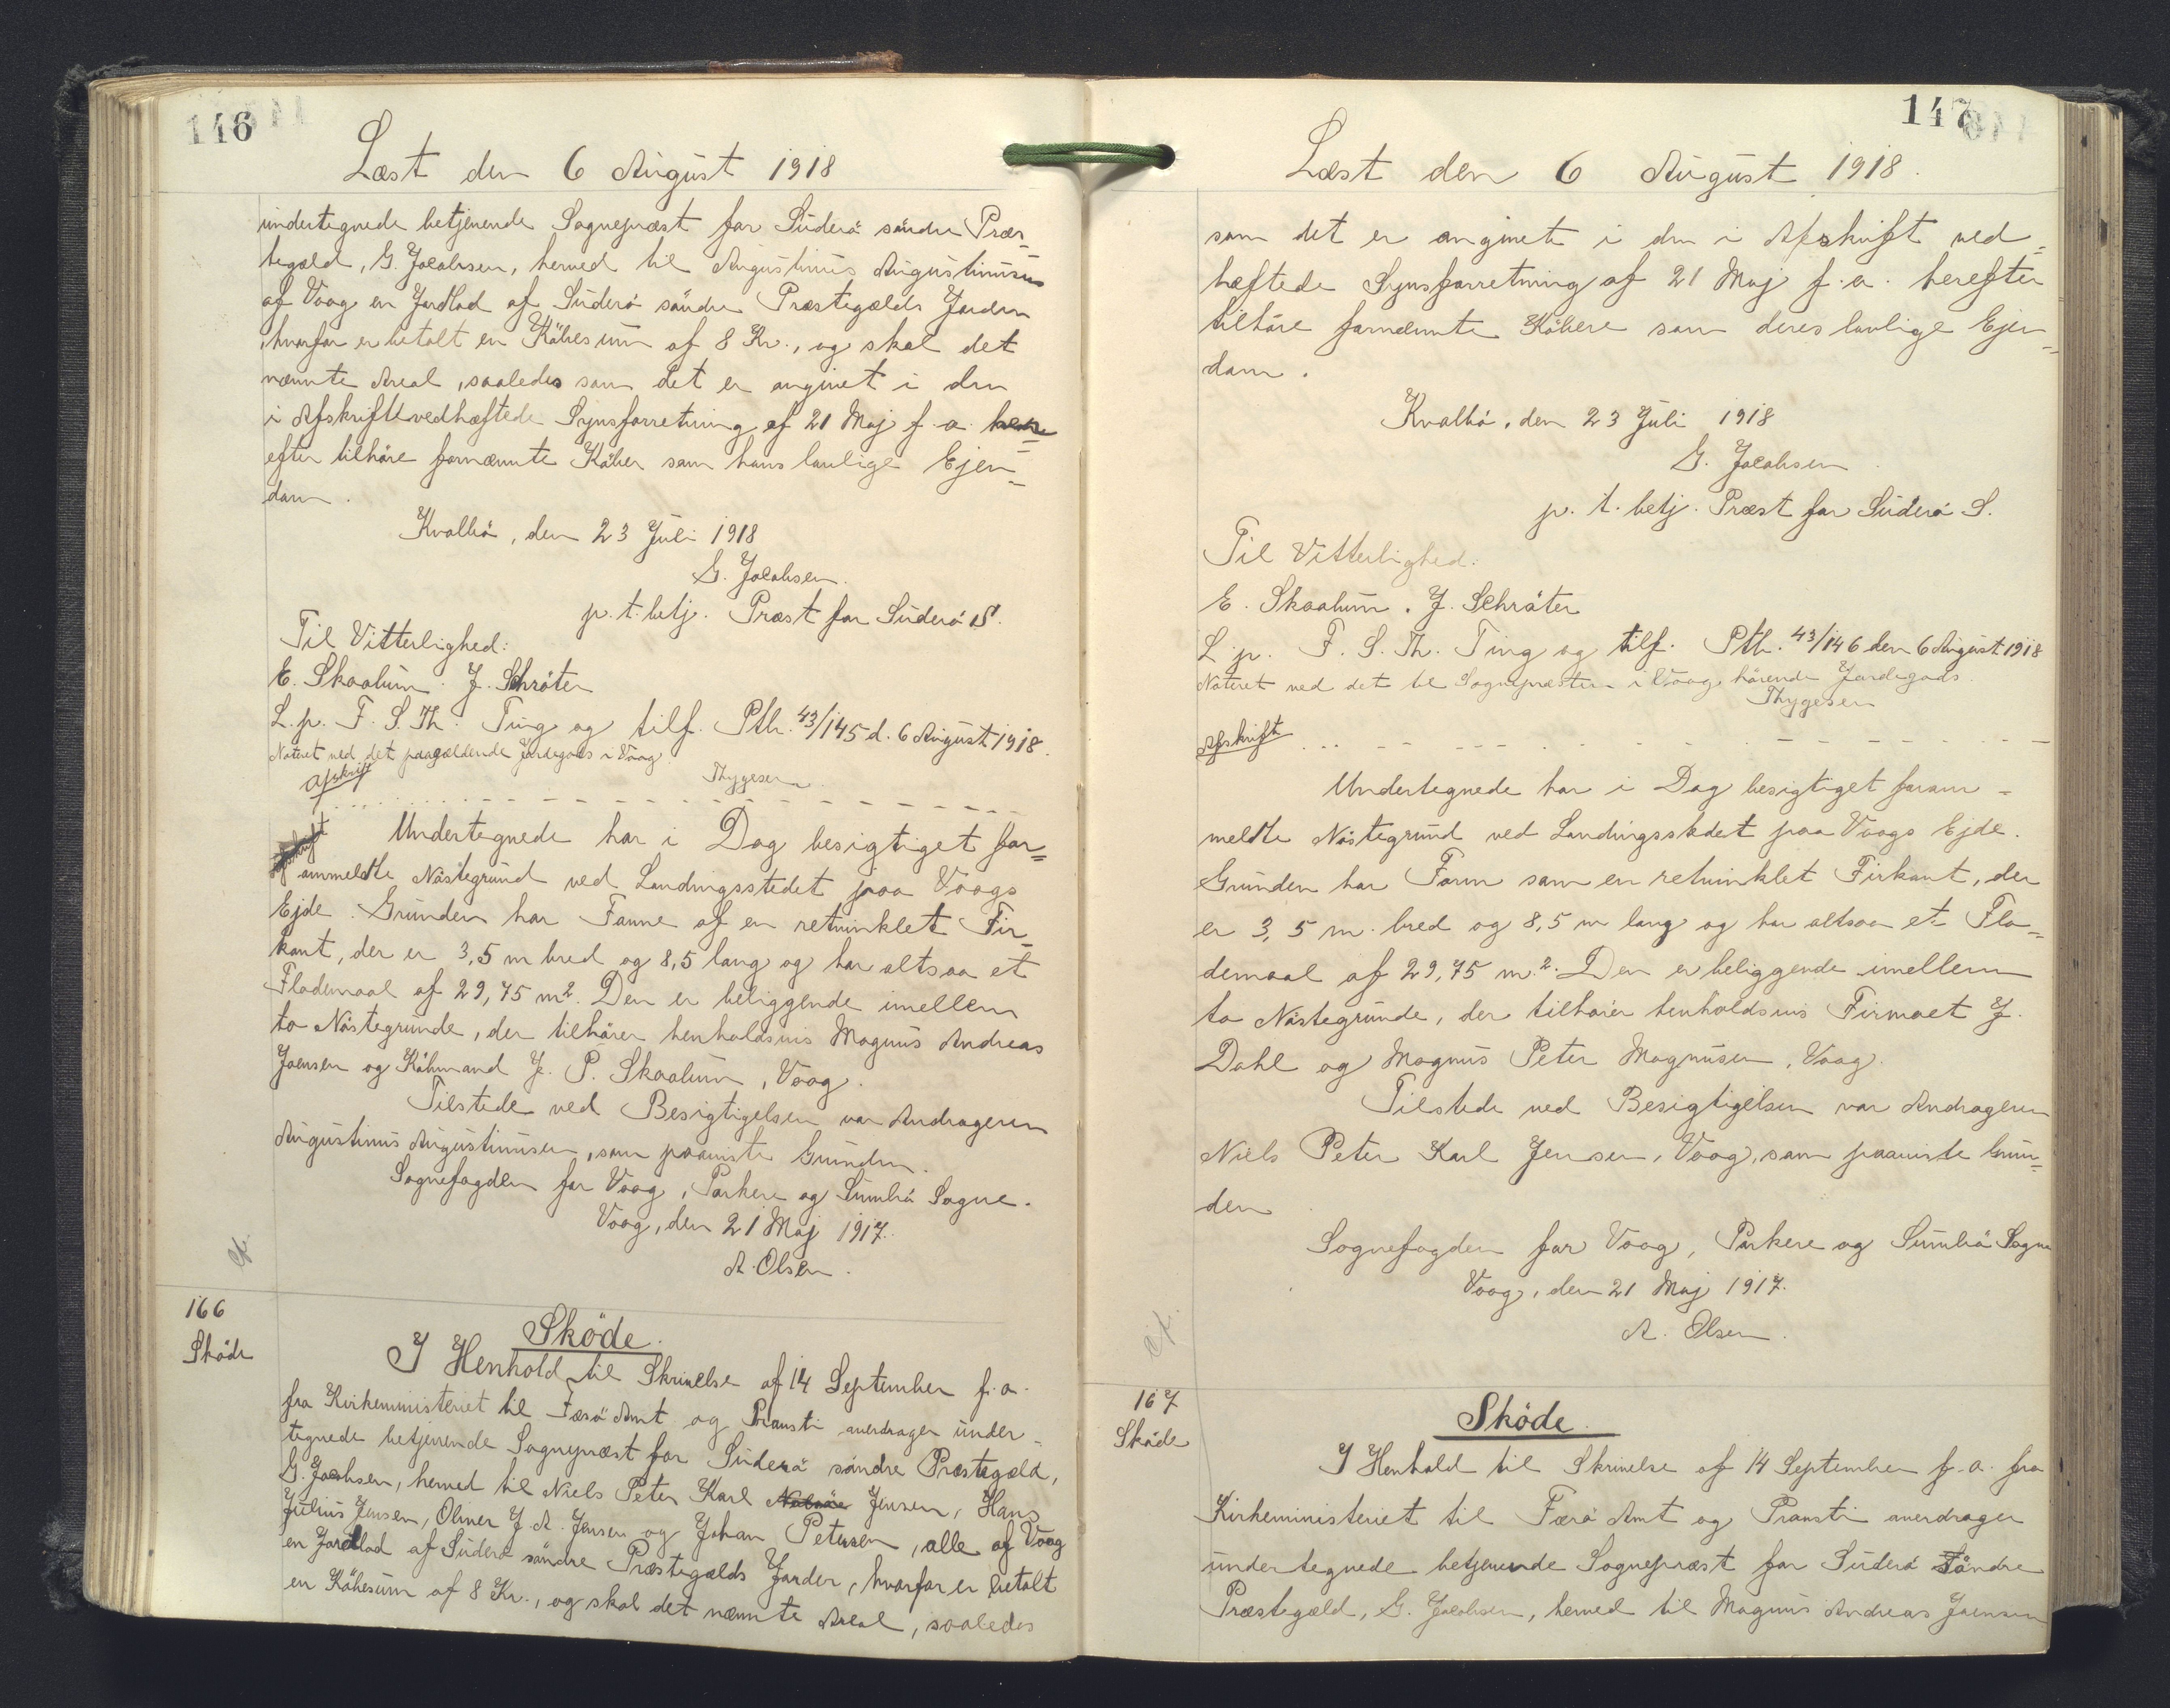 146
Læst den 6 August 1918
undertegnede betjenende Sognepræst for Suderö söndre Præs=
tegæld, G. Jacobsen, herved til Augustinus Augustinussen
af Vaag en Jordlod af Suderö söndre Præstegælds Jorder
hvorfor er betalt en Köbesum af 8 Kr., og skal det
nævnte Areal, saaledes som det er angivet i den
i Afskrift vedhæftede Synsforretning af 21 Maj f.a. her=
efter tilhöre fornævnte Köber som hans lovlige Ejen=
dom.
Kvalbö, den 23 Juli 1918
G. Jacobsen.
p.t. betj. Præst for Suderö S.
Til Vitterlighed:
E. Skaalum. J. Schröter
L.p. F. S. Th. Ting og tilf. Ptb. 43/145 d. 6 August 1918.
Noteret ved det paagældende Jordegods i Vaag.
Thygesen.
Afskrift
Undertegnede har i Dag besigtiget for=
ammeldte Nöstegrund ved Landingsstedet paa Vaags
Ejde. Grunden har Forme af en retvinklet Fir=
kant, der er 3,5 m bred og 8,5 lang og har altsaa et
Flademaal af 29,75 m². Den er beliggende imellem
to Nöstegrunde, der tilhörer henholdsvis Magnus Andreas
Joensen og Köbmand J. P. Skaalum, Vaag.
Tilstede ved Besigtigelsen var Andrageren
Augustinus Augustinussen, som paaviste Grunden.
Sognefogden for Vaag, Porkere og Sumbö Sogne.
Vaag, den 21 Maj 1917.
A. Olsen.
166
Sköde
Sköde.
I Henhold til Skrivelse af 14 September f.a.
fra Kirkeministeriet til Færö Amt og Provsti overdrager under=
tegnede betjenende Sognepræst for Suderö söndre Præstegæld,
G. Jacobsen, herved til Niels Peter Karl Jensen, Hans
Julius Jensen, Oliver J. A. Jensen og Johan Petersen, alle af Vaag
en Jordlod af Suderö söndre Præstegælds Jorder, hvorfor er betalt
en Köbesum af 8 Kr., og skal det nævnte Areal, saaledes
147
Læst den 6 August 1918.
som det er angivet i den i Afskrift ved=
hæftede Synsforretning af 21 Maj f.a. herefter
tilhöre fornævnte Köbere som deres lovlige Ejen=
dom.
Kvalbö, den 23 Juli 1918
G. Jacobsen.
p. t. betj. Præst for Suderö S.
Til Vitterlighed:
E. Skaalum. J. Schröter
L.p. F. S. Th. Ting og tilf. Ptb. 43/146 den 6 August 1918
Noteret ved det til Sognepræsten i Vaag hörende Jordegods.
Thygesen
Afskrift
Undertegnede har i Dag besigtiget foran=
meldte Nöstegrund ved Landingsstedet paa Vaags Ejde.
Grunden har Form som en retvinklet Firkant, der
er 3,5 m. bred og 8,5 m lang og har altsaa et Fla=
demaal af 29,75 m.². Den er beliggende imellem
to Nöstegrunde, der tilhörer henholdsvis Firmaet J.
Dahl og Magnus Peter Magnusen, Vaag.
Tilstede ved Besigtigelsen var Andrageren
Niels Peter Karl Jensen, Vaag, som paaviste Grun=
den
Sognefogden for Vaag, Porkere og Sumbö Sogne
Vaag, den 21 Maj 1917.
A. Olsen.
167
Sköde
Sköde.
I Henhold til Skrivelse af 14 September f.a. fra
Kirkeministeriet til Færö Amt og Provsti overdrager
undertegnede betjenende Sognepræst for Suderö Söndre
Præstegæld, G. Jacobsen, herved til Magnus Andreas Joensen